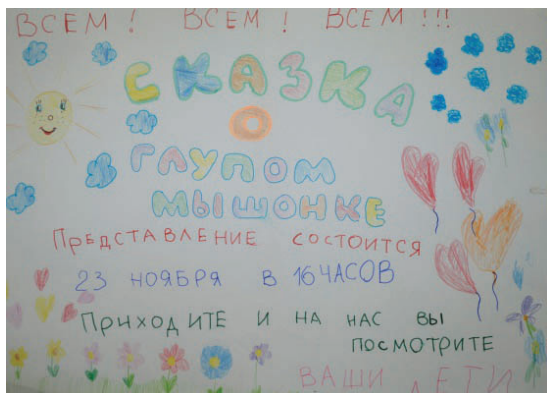 ВСЕМ! ВСЕМ! ВСЕМ!!!
СКАЗКА
О
ГЛУПОМ
МЫШОНКЕ
ПРЕДСТАВЛЕНИЕ СОСТОИТСЯ
23 НОЯБРЯ В 16 ЧАСОВ
ПРИХОДИТЕ И НА НАС ВЫ
ПОСМОТРИТЕ
ВАШИ ДЕТИ